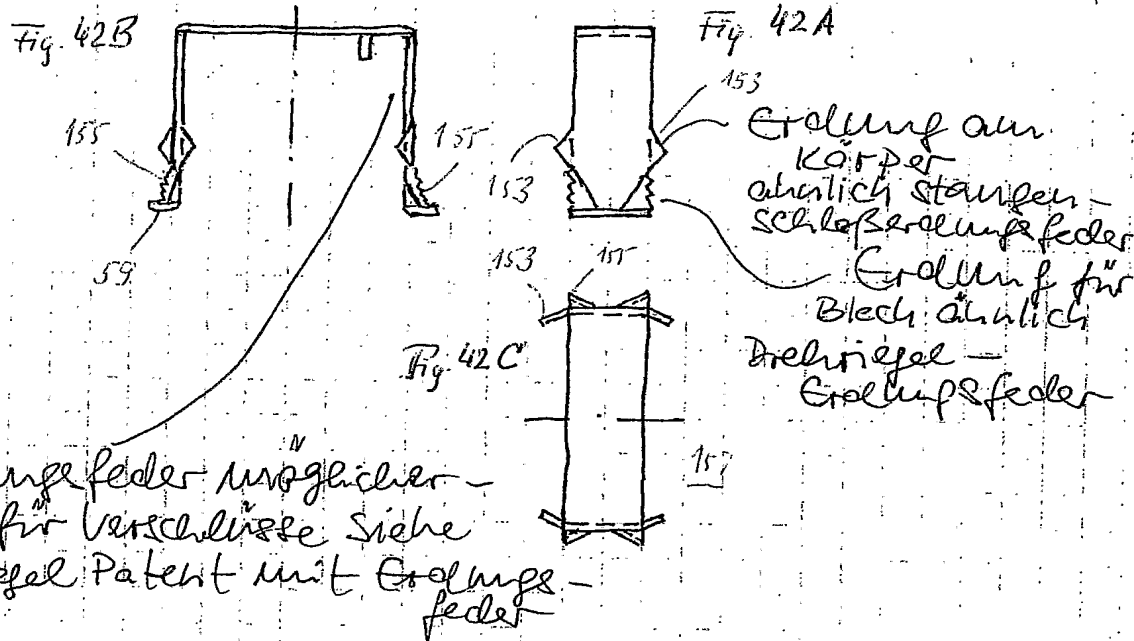 Fig. 42B
Fig. 42A
155
155
59
153
153
Erdung am
Körper
ähnlich Stangen-
schloßerdungsfeder
Erdung für
Blech ähnlich
Drehriegel-
Erdungsfeder
153
155
Fig. 42C
feder möglicher-
für Verschlüsse siehe
Patent mit Erdungs-
feder